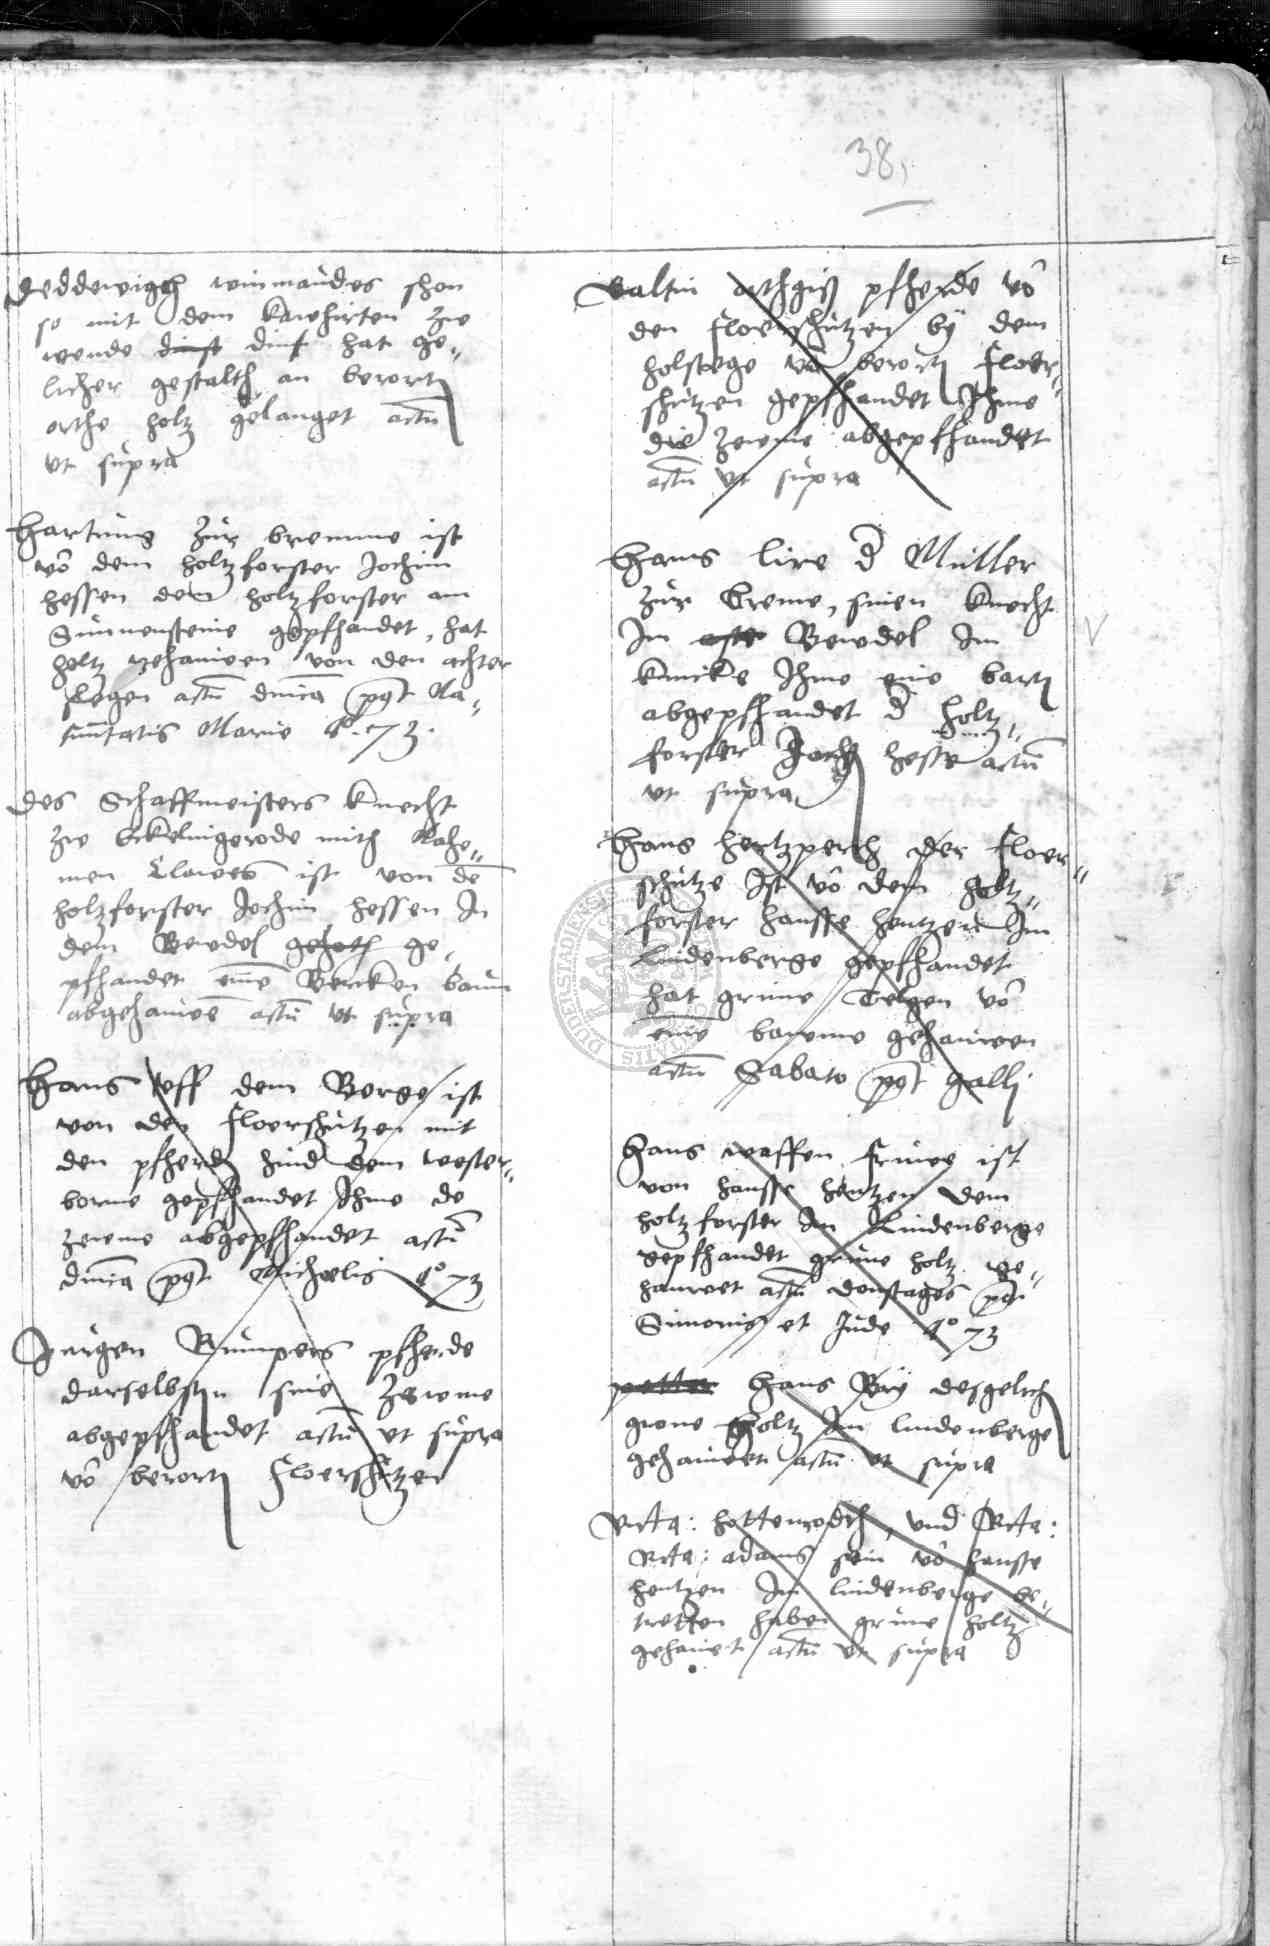 38,
Deddewigh winmandes shon
so mit dem kuehirten zw
wende dinst dinst hat ge„
licher gestalth an berortn
orthe holtz gelanget actu
ut supra
Hartung Zur bremme ist
vo dem holtzforster Jochim
hessen dem holtzforster am
Sunnensteine gepfhandet, hat
holtz gehauwen von den achter
flegen actu dnica post Na„
tiuitatis Marie Ao. 73.
Des Schaffmeisters knecht
zw Eckelingerode mith Nahe„
men Clawes ist von de
holtzforster Jochim hessen In
dem Bewdel ge„
pfhandet eine Bercken baum
abgehauwe actu ut supra
Hans uff dem Berge ist
von den floerschutzen mit
den pfherdn hind dem wester„
borne gepfhandet Ihme de
zewme abgepfhandet actu
dnica post Michaelis Ao 73
Jurgen Rumpers pfherde
darselbstn sine Zewme
abgepfhandet actu ut supra
vo berortn floerschutzen
Valtin arthgis pfherde vo
den floerschutzen by dem
holstege vo berortn floer„
schutzen gepfhandet Ihme
die zewme abgepfhandet
actu ut supra
Hans lire d Muller
Zur Breme, sinen knecht
Im Bewdel Im
knicke Ihme eine bartn
abgepfhandet d holtz„
forster Joch hesse actu
ut supra
Hans hertzperch der floer„
schutze Ist vo dem holtz„
forster hansse hentzen Im
Lindenberge gepfhandet
hat grune Telgen vo
eine bawme gehauwen
actu Sabato post galli
Hans waffen ist
von hansse hentzen dem
holtzforster Im Lindenberge
gepfhandet grune holtz ge„
hauwet actu donstages post
Simonis et Jude Ao 73
Hans Bry desgelich
grone holtz Im lindenberge
gehauwen actu ut supra
hottenrodth, und
adams sein vo hansse
hentzen Im lindenberge be„
tretten haben grune holtz
gehauwet actu ut supra
DUDERSTADIENSIS